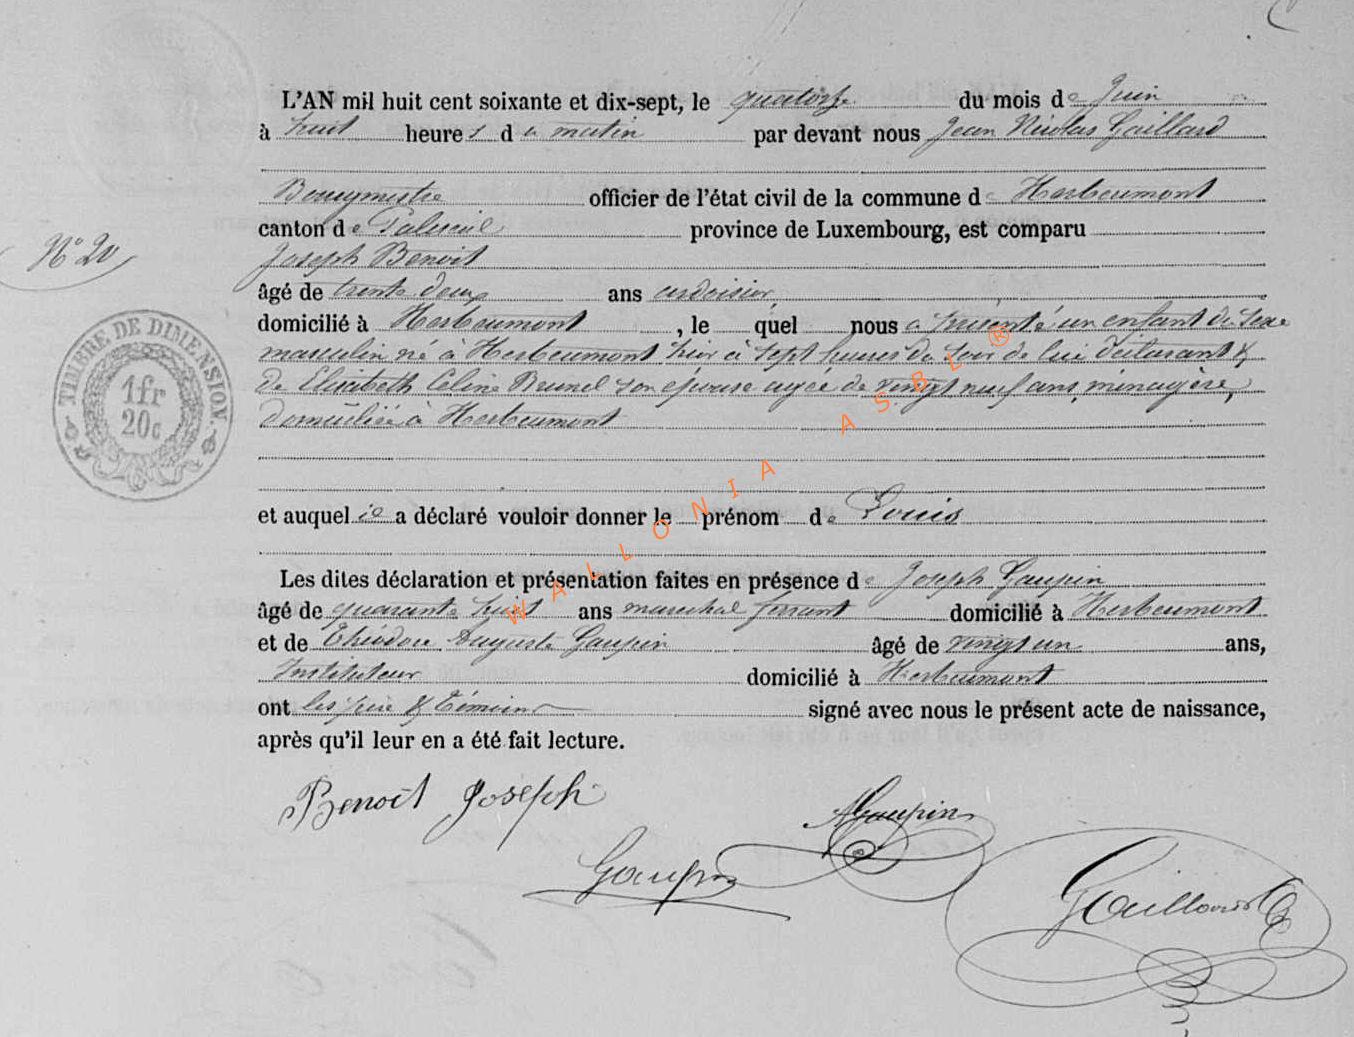 L'AN mil huit cent soixante et dix-sept, le quatorze du mois de Juin
à huit heures du matin par devant nous Jean Nicolas Gaillard
Bourgmestre officier de l'état civil de la commune de Herbeumont
N° 20
canton de Paliseul province de Luxembourg, est comparu
Joseph Benoit
âgé de trente deux ans ardoisier,
domicilié à Herbeumont, le quel nous a présenté un enfant du sexe
masculin né à Herbeumont hier à sept heures du soir de lui déclarant &
de Elisabeth Céline Brunel son épouse agée de vingt neuf ans, ménagère,
domiciliée à Herbeumont
TIMBRE DE DIMENSION.
1fr
20c
et auquel il a déclaré vouloir donner le prénom de Louis
Les dites déclaration et présentation faites en présence de Joseph Gaupin
âgé de quarante huit ans marechal ferrant domicilié à Herbeumont
et de Théodore Auguste Gaupin âgé de vingt un ans,
Instituteur domicilié à Herbeumont
ont les père & témoins signé avec nous le présent acte de naissance,
après qu'il leur en a été fait lecture.
Benoit Joseph
AGaupin
Gaupin
Gaillard
WALLONIA ASBL ®